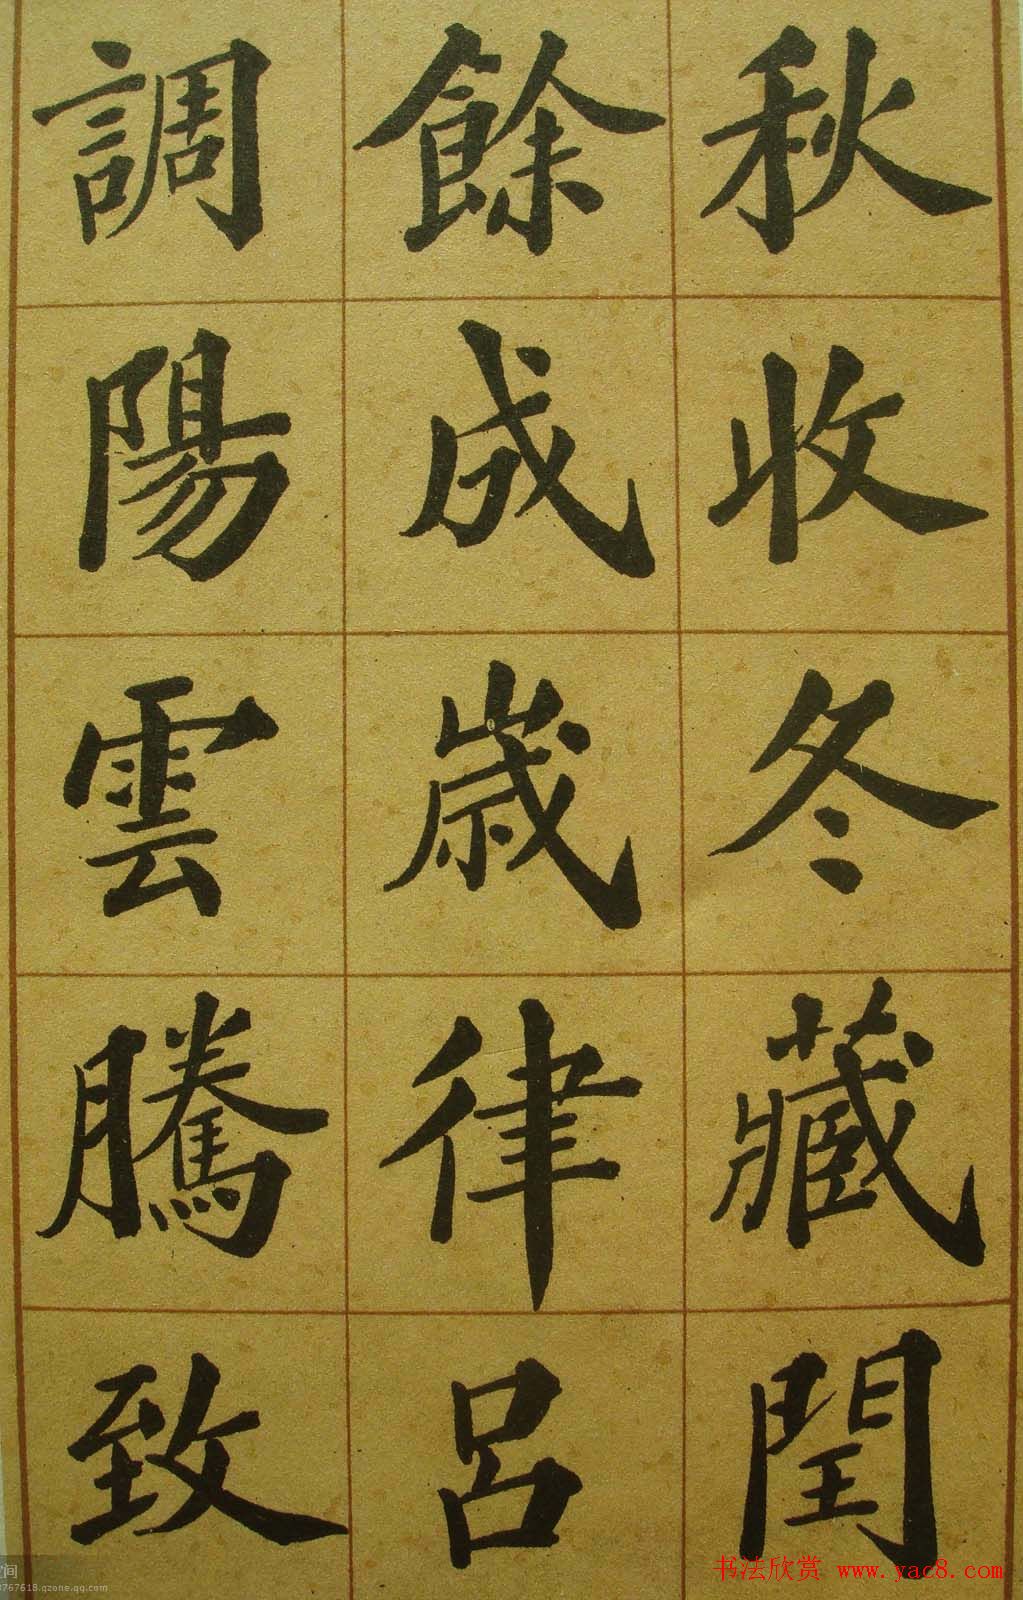 秋收冬藏閏
餘成歲律呂
調陽雲騰致
书法欣赏 www.yac8.com
空间
3767618.qzone.qq.com